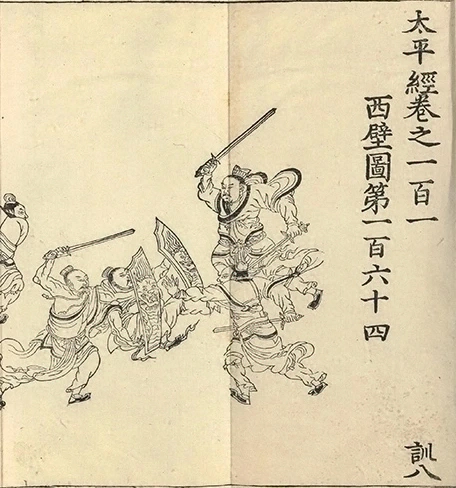 太平經卷之一百一
西壁圖第一百六十四
訓八